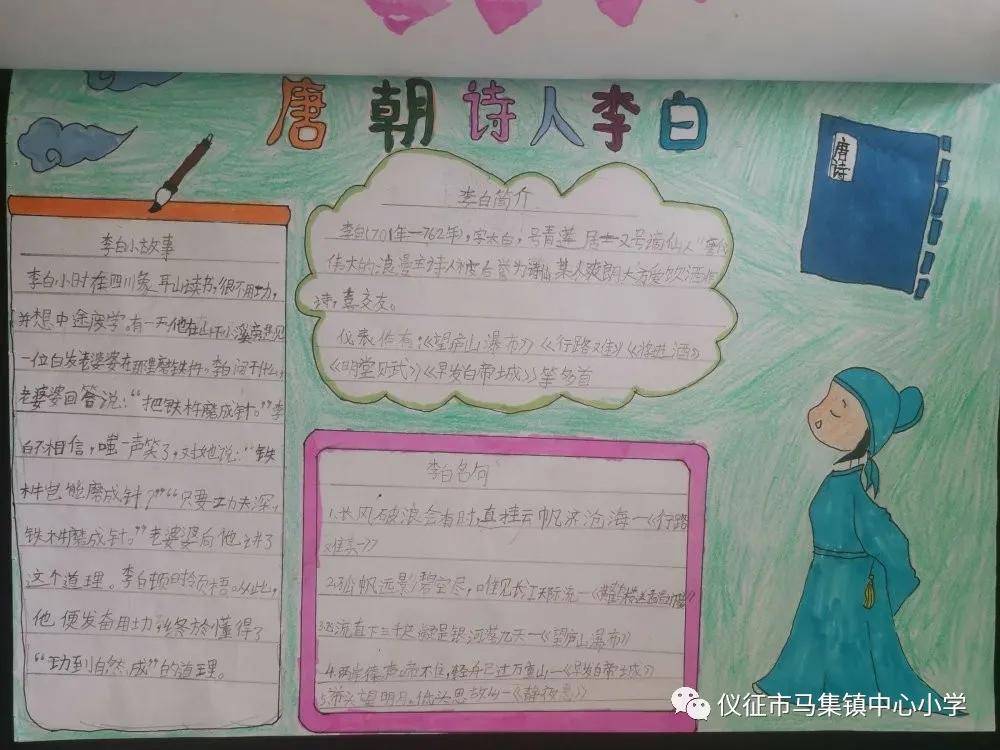 唐朝诗人李白
唐诗
李白小故事
李白小时在四川象耳山读书，很不用功，
并想中途废学。有一天他在山下小溪旁遇见
一位白发老婆婆在那里磨铁杵。李白问干什么，
老婆婆回答说：“把铁杵磨成针。”李
白不相信，嗤一声笑了，对她说：“铁
杵岂能磨成针？”“只要功夫深，
铁杵磨成针。”老婆婆向他讲了
这个道理。李白顿时领悟。从此，
他便发奋用功 终於懂得了
“功到自然成”的道理。
李白简介
李白(701年—762年)，字太白，号青莲居士又号谪仙人“唐代
伟大的浪漫主诗人被后誉为诗仙 某人爽朗大方爱饮酒作
诗，喜交友。
代表作有：《望庐山瀑布》《行路难》《将进酒》
《明堂赋》《早发白帝城》等多首
李白名句
1.长风破浪会有时，直挂云帆济沧海—《行路
难其一》
2.孤帆远影碧空尽，唯见长江天际流—《黄鹤楼送孟
3.飞流直下三千尺 疑是银河落九天—《望庐山瀑布》
4.两岸猿声啼不住，轻舟已过万重山—《早发白帝城》
5.举头望明月，低头思故乡—《静夜思》
仪征市马集镇中心小学